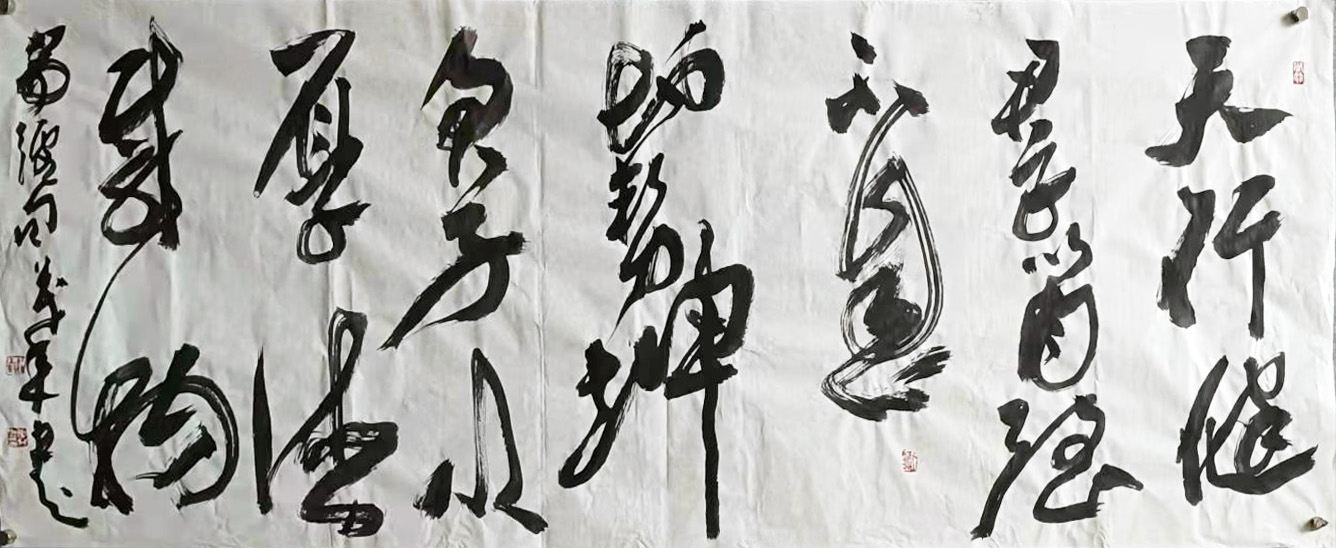 天行健
君子以自強
不息
地勢坤
君子以
厚德
載物